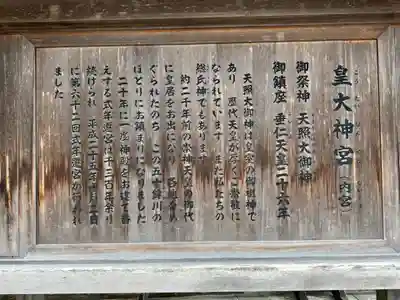 皇大神宮(内宮)
こうたいじんぐう ないくう
御祭神 天照大御神
御鎮座 垂仁天皇二十六年
天照大御神は皇室の御祖神で
あり 歴代天皇が厚くご崇敬に
なられています また私たちの
総氏神でもあります
約二千年前の崇神天皇の御代
に皇居をお出になり 各地を
めぐられたのち この五十鈴川の
ほとりにお鎮まりになりました
二十年に一度神殿をお建て替
えする式年遷宮は千三百年余り
続けられ 平成二十五年十月二日
に第六十二回式年遷宮が行われ
ました